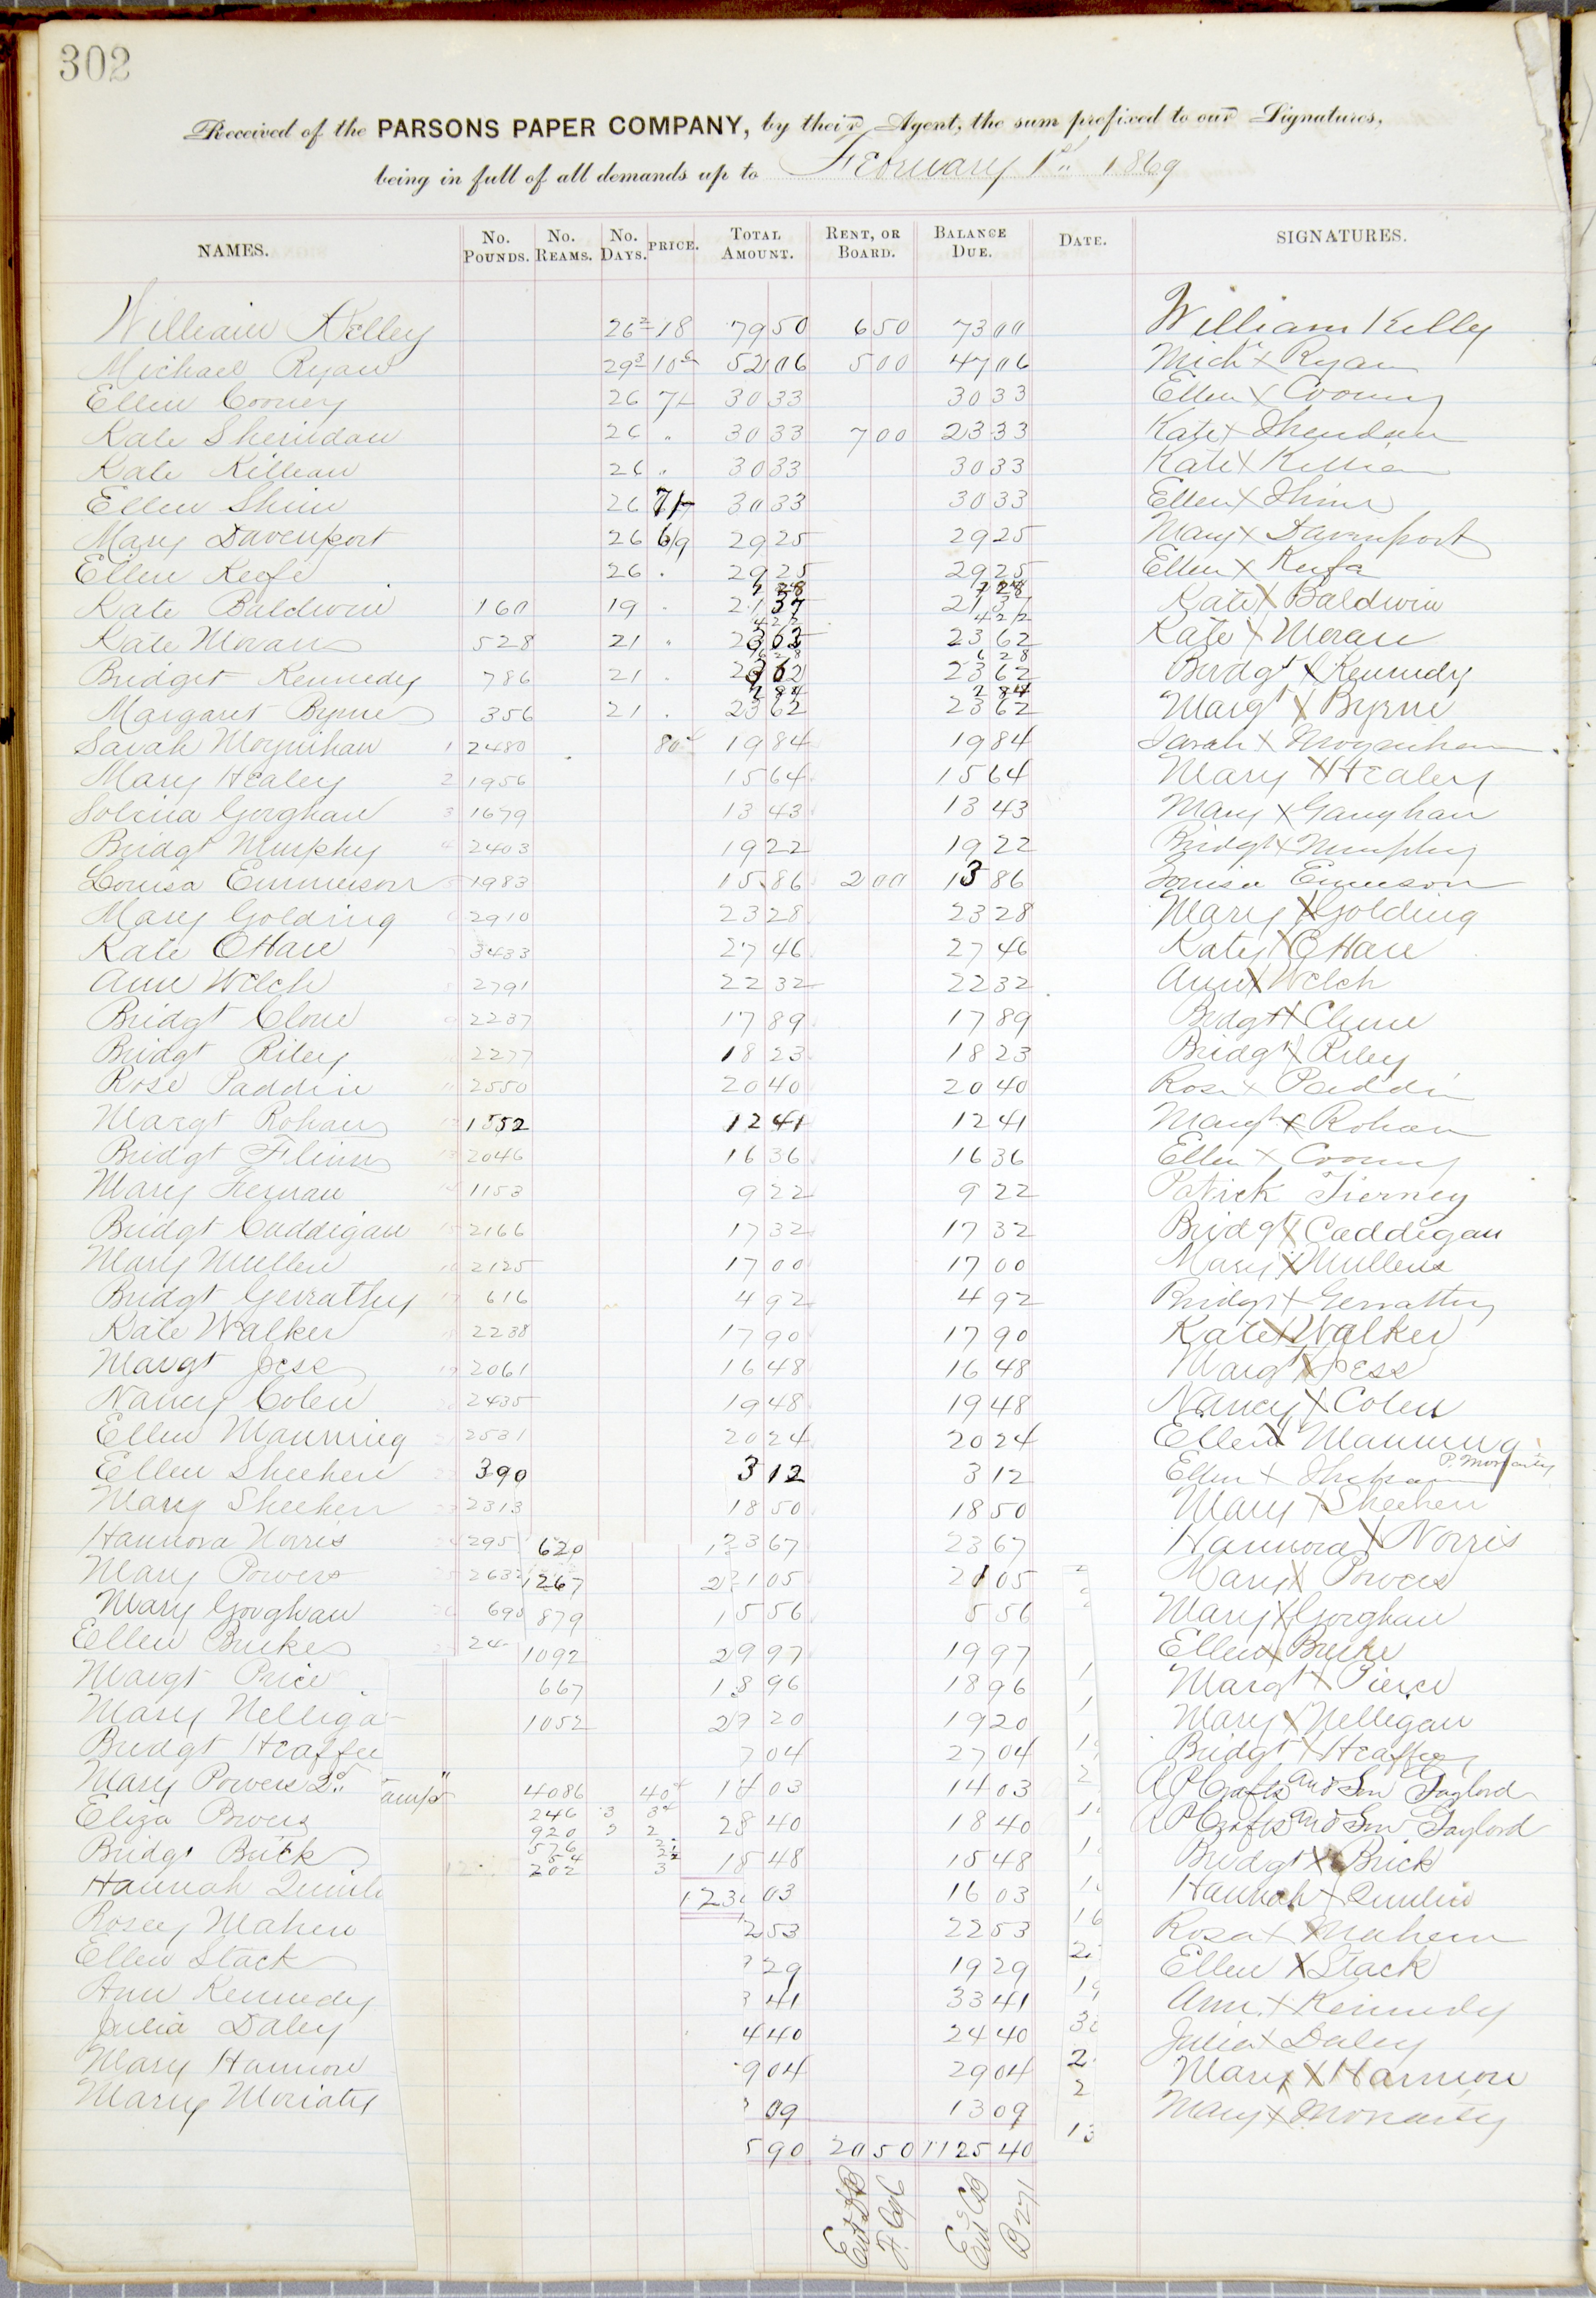 302
Received of the PARSONS PAPER COMPANY, by their Agent, the sum prefixed to our Signatures,
being in full of all demands up to February 1st 1869
NAMES. No. Pounds. No. Reams. No. Days. PRICE. Total Amount. Rent, or Board. Balance Due. Date. SIGNATURES.
William Kelley 26 18 79 50 6 50 73 00 William Kelly
Michael Ryan 29 10 52 06 5 00 47 06 Mich x Ryan
Ellen Cooney 26 7/- 30 33 30 33 Ellen x Cooney
Kate Sheridan 26 " 30 33 7 00 23 33 Kate x Sheridan
Kate Killean 26 " 30 33 30 33 Kate x Killian
Ellen Shinn 26 7/- 30 33 30 33 Ellen x Shinn
Mary Davenport 26 6/9 29 25 29 25 Mary x Davenport
Ellen Keefe 26 " 29 25 29 25 Ellen x Keefe
1 28 1 28
Kate Baldwin 160 19 " 21 37 21 37 Kate x Baldwin
4 22 4 22
Kate Moran 528 21 " 23 62 23 62 Kate x Moran
6 28 6 28
Bridget Kennedy 786 21 " 23 62 23 62 Bridgt x Kennedy
2 84 2 84
Margaret Byrne 356 21 " 23 62 23 62 Margt x Byrne
Sarah Moynihan 1 2480 80c 19 84 19 84 Sarah x Moynihan
Mary Healey 2 1956 15 64 15 64 Mary x Healey
Gorghan 3 1679 13 43 13 43 Mary x Gaughan
Bridgt Murphy 4 2403 19 22 19 22 Bridgt x Murphy
Louisa Emmerson 5 1983 15 86 2 00 13 86 Louisa Emerson
Mary Golding 6 2910 23 28 23 28 Mary x Golding
Kate OHare 7 3433 27 46 27 46 Katy x OHare
Ann Welch 8 2791 22 32 22 32 Ann x Welch
Bridgt Clone 9 2237 17 89 17 89 Bridgt x Clune
Bridgt Riley 10 2277 18 23 18 23 Bridgt x Riley
Rose Paddin 11 2550 20 40 20 40 Rose x Paddin
Margt Rohan 12 1552 12 41 12 41 Margt x Rohan
Bridgt Flinn 13 2046 16 36 16 36 Ellen x Cooney
Mary Tiernan 14 1153 9 22 9 22 Patrick Tierney
Bridgt Caddigan 15 2166 17 32 17 32 Bridgt x Caddigan
Mary Mullen 16 2125 17 00 17 00 Mary x Mullens
Bridgt Gerrathy 17 616 4 92 4 92 Bridgt x Gerrathy
Kate Walker 18 2238 17 90 17 90 Kate x Walker
Margt Jess 19 2061 16 48 16 48 Margt x Jess
Nancy Colen 20 2435 19 48 19 48 Nancy x Colen
Ellen Manning 21 2531 20 24 20 24 Ellen x Manning
Ellen Sheehen 22 390 3 12 3 12 Ellen x Sheehan P. Moriarty
Mary Sheehen 23 2313 18 50 18 50 Mary x Sheehen
Hannora Norris 24 295 620 23 67 23 67 Hannora x Norris
Mary Powers 25 263 1267 21 05 21 05 Mary x Powers
Mary Gorghan 26 690 879 5 56 5 56 Mary x Gorghan
Ellen Burke 24 1092 29 97 19 97 Ellen x Burke
Margt Price 667 18 96 18 96 Margt x Pierce
Mary Nelliga 1052 29 20 19 20 Mary x Nelligan
Bridgt Heaffee 7 04 27 04 Bridgt x Heaffey
Mary Powers 2d 4086 40c 14 03 14 03 R P Crafts and Son Gaylord
Eliza Powers 246 3 3c 28 40 18 40 R P Crafts and Son Gaylord
920 3 2
576
Bridgt Brick 202 3 15 48 15 48 Bridgt x Brick
Hannah Quinl 123 03 16 03 Hannah x Quinlin
Rosey Mahern 2 53 22 53 Rosa x Mahern
Ellen Stack 29 19 29 Ellen x Stack
Ann Kennedy 3 41 33 41 Ann x Kennedy
Julia Daley 4 40 24 40 Julia x Daley
Mary Hannon 9 04 29 04 Mary x Hannon
Mary Moriaty 3 09 13 09 Mary x Moriarty
5 90 20 50 1125 40
Entd
Entd CB
B 271